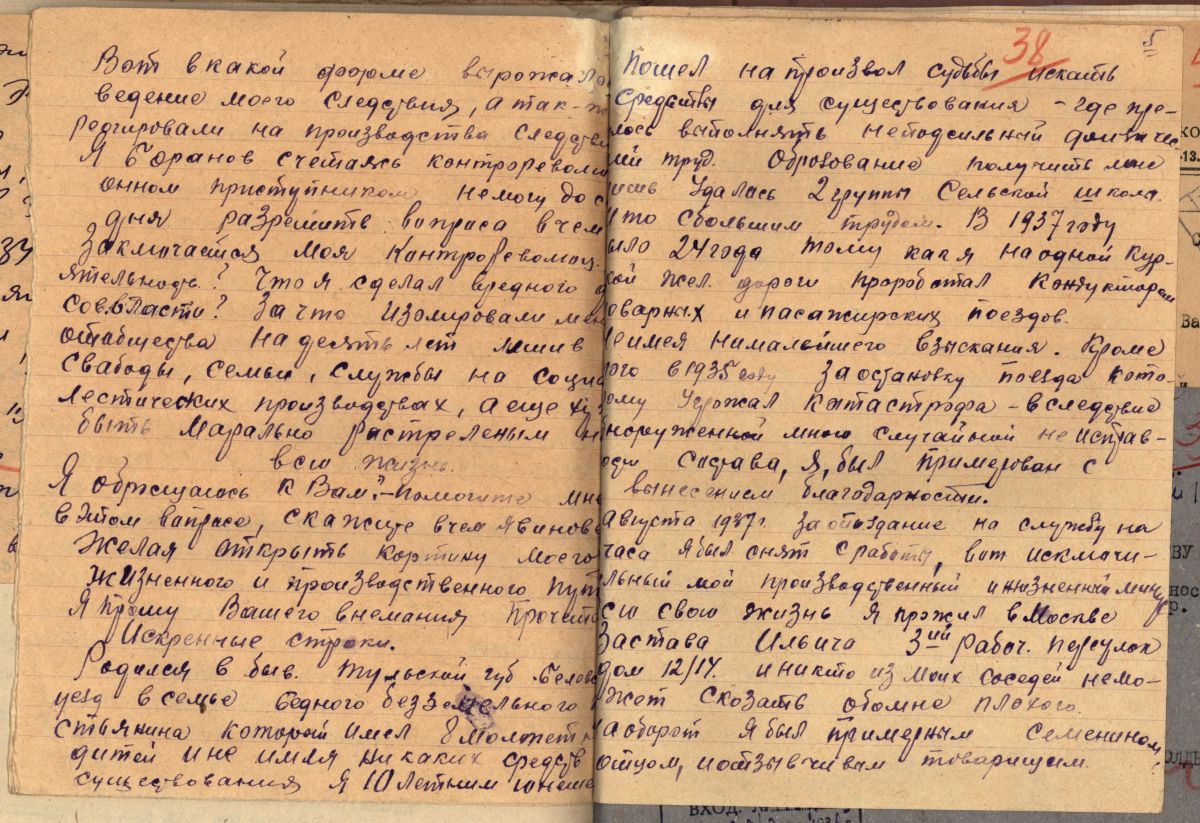 Вот в какой форме вырожало
ведение моего следствия, а так-ж
редгировали на производства следстви
Я Боранов счетаясь контрреволю
онном приступником немогу до с
дня разрешить вапроса в чем
Заключается моя Контрреволюц.
ятельность? Что я сделал вредного
Сов.власти? За что Изолировали мен
отабщества на десять лет лишив
Свабоды, семьи, службы на Социа
лестических производствах, а еще
быть Марально растреленым н
всю жизнь.
Я обращаюсь к Вам:- помогите мне
в этом вапросе, скажите в чем я винов
Желая открыть кортину моего
жизненного и производственного пут
Я прошу Вашего внемания прочета
Искренные строки.
Родился в быв. Тульской губ. Белевс
уезд в семье бедного беззе льного
стьянина который имел 8 мололет
дитей и не имля никаких средств
существования я 10 летним юноше
38
5
Пошел на произвол судьбы искать
Средствы для существования - где пре-
лось выполнять неподсильный физичес
ий труд. Оброзование получить мне
ишь Удалась 2 группы Сельской школа.
и то с большим трудом. В 1937 году
ыло 24 года тому как я на одной Кур-
кой жел. дороги проработал Кондуктором
оварных и пасажирских поездов.
Не имея ни малейшего взыскания. Кроме
того в 1935 году за остановку поезда кото-
ому Угрожал катастрофа - вследствие
бноруженной мною случайной не исправ-
ости состава, я, был примерован с
вынесением благодарности.
Августа 1937 г. за опоздание на службу на
часа я был снят с работы, вот исключи-
льный мой производственный и жизненный
сю свою жизнь я прожил в Москве
Застава Ильича 3-ий рабоч. переулок
дом 12/17. и никто из моих соседей немо-
жет сказать обомне плохого.
аоборот я был примерным семенином,
отцом, и отзывчивым товарищем.
ВХОД.